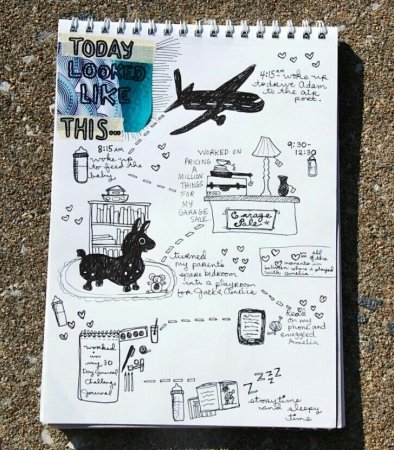 TODAY
LOOKED
LIKE
THIS...
4:15 am woke up
to drive Adam
to the air
port.
8:15 am
woke up
to feed the
baby.
WORKED ON
PRICING
A
MILLION
THINGS
FOR
MY
GARAGE
SALE
9:30-
12:30
Garage
Sale
turned
my parent's
spare bedroom
into a playroom
for Jack & Amelia
all of
the
moments in
between where i played
with Amelia
Read
on my
phone and
snuggled
Amelia
worked
in my 30
Day Journal
Challenge
Journal
ZZZZ
storytime
and sleepy
time